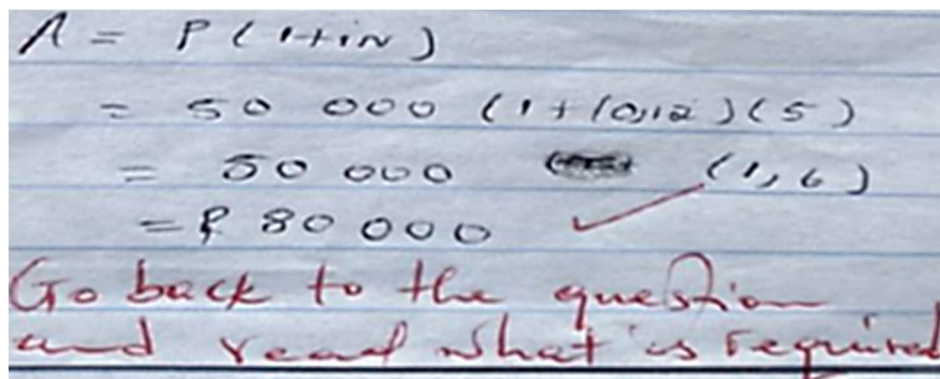 A = P(1+in)
= 50 000 (1+(0,12)(5)
= 50 000 (1,6)
= R 80 000
Go back to the question
and read what is required